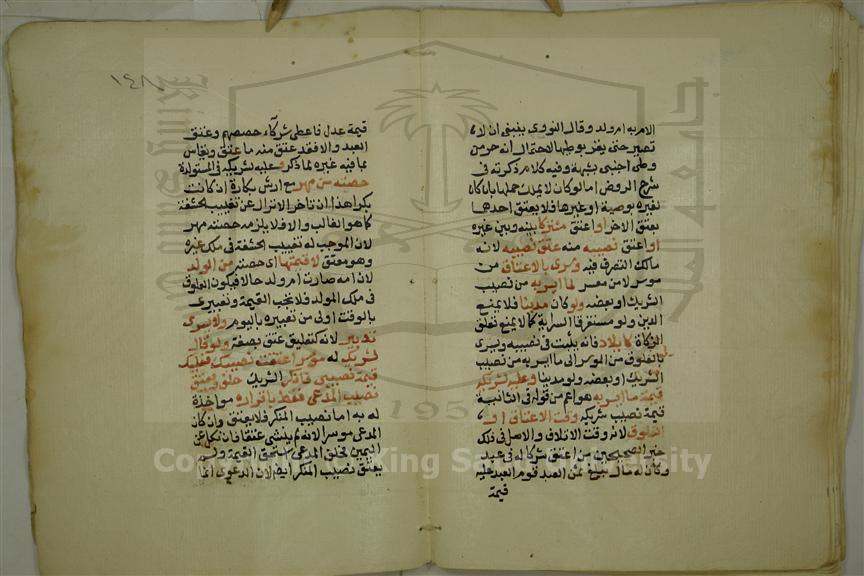 الامر به ام ولد وقال النووي ينبغي ان لا
تصير حتى يقر بوطئها لاحتمال انه حر من
وطئ اجنبي بشبهة وفيه كلام ذكرته في
شرح الروض اما لو كان لا يملك حملها بان كان
لغيره بوصية او غيرها فلا يعتق احدهما
بعتق الاخر او اعتق مشتركا بينه وبين غيره
او اعتق نصيبه منه عتق نصيبه لانه
مالك التصرف فيه وسرى بالاعتاق من
موسر لا من معسر لما ايسر به من نصيب
الشريك او بعضه ولو كان مدينا فلا يمنع
الدين ولو مستغرقا السراية كما لا يمنع تعلق
الزكاة كايلاد فانه يثبت في نصيبه ويسري
بالعلوق من الموسر الى ما ايسر به من نصيب
الشريك او بعضه ولو مدينا وعليه لشريكه
قيمة ما ايسر به هو اعم من قوله في الثانية
قيمة نصيب شريكه وقت الاعتاق او
العلوق لانه وقت الاتلاف والاصل في ذلك
خبر الصحيحين من اعتق شركا له في عبد
وكان له مال يبلغ ثمن العبد قوم العبد عليه
قيمة
١٤٨
قيمة عدل فاعطى شركاءه حصصهم وعتق
العبد والا فقد عتق منه ما عتق ويقاس
بما فيه غيره لما ذكر وعليه لشريكه في المستولدة
حصته من مهر مع ارش بكارة ان كانت
بكرا هذا ان تاخر الانزال عن تغييب الحشفة
كما هو الغالب والا فلا يلزمه حصته مهر
لان الموجب له تغييب الحشفة في ملك غيره
وهو معتق لا قيمتها اي حصته من الولد
لان امه صارت ام ولد حالا فيكون العلوق
في ملك المولد فلا تجب القيمة وتعبيري
بالوقت اولى من تعبيره باليوم ولا يسري
تدبير لانه كتعليق عتق بصفة ولو قال
لشريكه له موسر اعتقت نصيبك فعليك
قيمة نصيبي فانكر الشريك حلف ويعتق
نصيب المدعي فقط باقراره مواخذة
له به اما نصيب المنكر فلا يعتق وان كان
المدعى موسرا لانه لم ينشئ عتقا فان نكل عن
اليمين حلف المدعي واستحق القيمة ولم
يعتق نصيب المنكر ايضا لان الدعوى انما
جامعة الملك سعود
1957
King Saud University